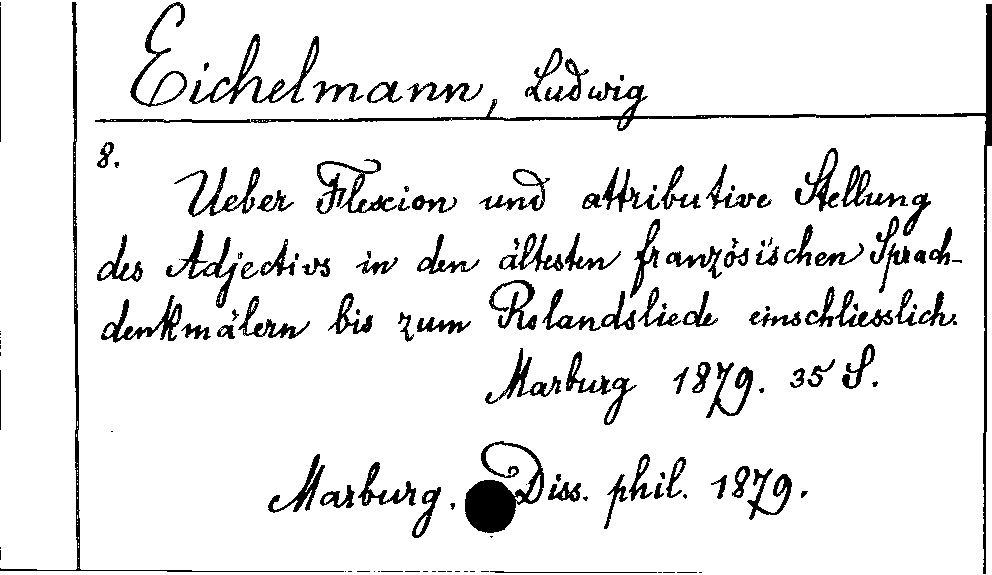 Eichelmann, Ludwig
8.
Ueber Flexion und attributive Stellung
des Adjectivs in den ältesten französischen Sprach-
denkmälern bis zum Rolandsliede einschliesslich.
Marburg 1879. 35 S.
Marburg. Diss. phil. 1879.